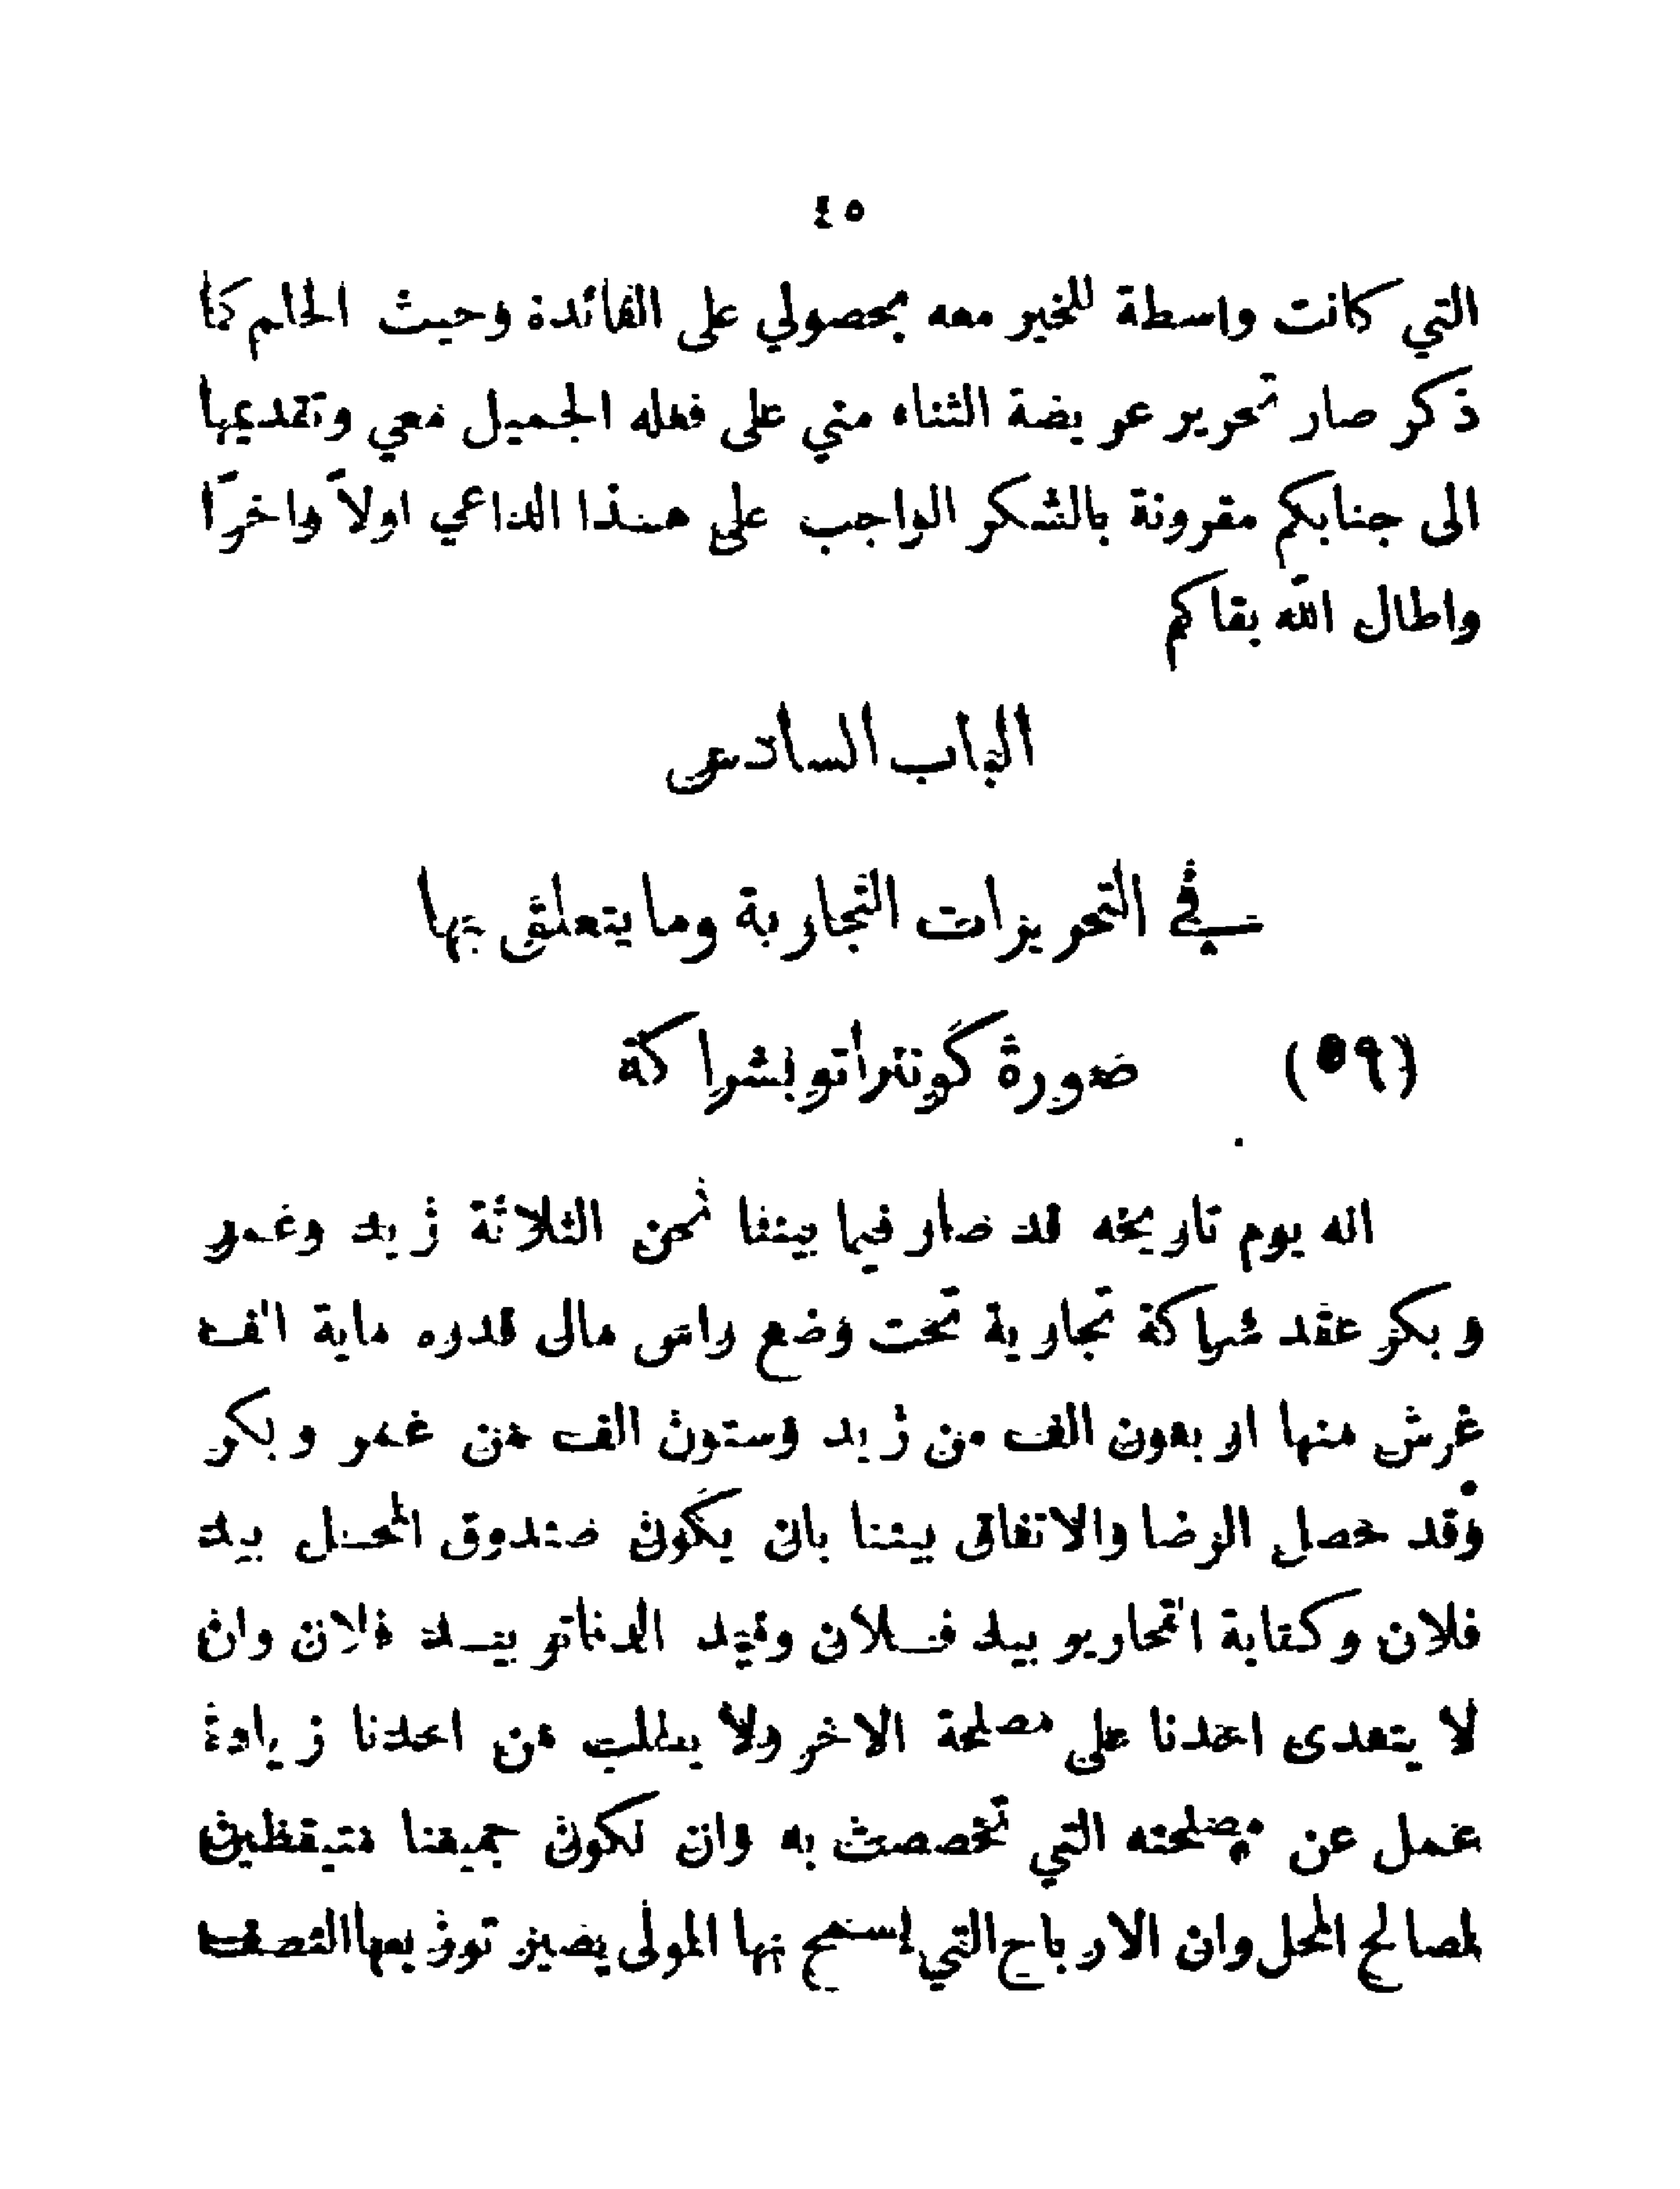 ٤٥
التي كانت واسطة للخير معه بحصولي على الفائدة وحيث الحلم كما
ذكر صار تحرير عريضة الثناء مني على فعله الجميل معي وتقديمها
الى جنابكم مقرونة بالشكر الواجب على هذا الداعي اولاً واخراً
واطال الله بقاكم
الباب السادس
في التحريرات التجارية وما يتعلق بها
(٥٩) صورة كونتراتو بشراكة
انه يوم تاريخه قد صار فيما بيننا نحن الثلاثة زيد وعمر
وبكر عقد شراكة تجارية تحت وضع راس مال قدره ماية الف
غرش منها اربعون الف من زيد وستون الف من عمر وبكر
وقد حصل الرضا والاتفاق بيننا بان يكون صندوق المحل بيد
فلان وكتابة التحارير بيد فلان وقيد الدفاتر بيد فلان وان
لا يتعدى احدنا على مصلحة الاخر ولا يطلب من احدنا زيادة
عمل عن مصلحته التي تخصصت به وان نكون جميعنا متيقظين
لمصالح المحل وان الارباح التي يسمح بها المولى يصير توزيعها النصف